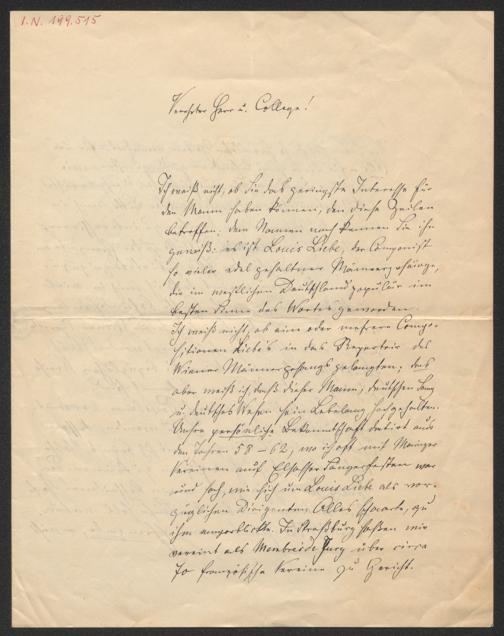 I.N. 199.515
Verehrter Herr u. College!
Ich weiß nicht, ob Sie das geringste Interesse für
den Mann haben können, den diese Zeilen
betreffen; dem Namen nach kennen Sie ihn
gewiß: es ist Louis Liebe, der Componist
so vieler edel gehaltner Männergesänge,
die im westlichen Deutschland populär im
besten Sinne des Wortes geworden.
Ich weiß nicht, ob ein oder mehrere Compo-
sitionen Liebe's in das Repertoir des
Wiener Männergesangs gelangten; das
aber weiß ich daß dieser Mann, deutschen Sang
u. deutsches Wesen sein Lebelang hochgehalten.
Unsre persönliche Bekanntschaft datirt aus
den Jahren 58–62, wo ich oft mit Mainzer
Vereinen auf Elsasser Sängerfesten war
und sah, wie sich um Louis Liebe als vor-
züglichen Dirigenten Alles schaarte, zu
ihm emporblickte. In Straßburg saßen wir
vereint als Membres de Jury über circa
70 französische Vereine zu Gericht.